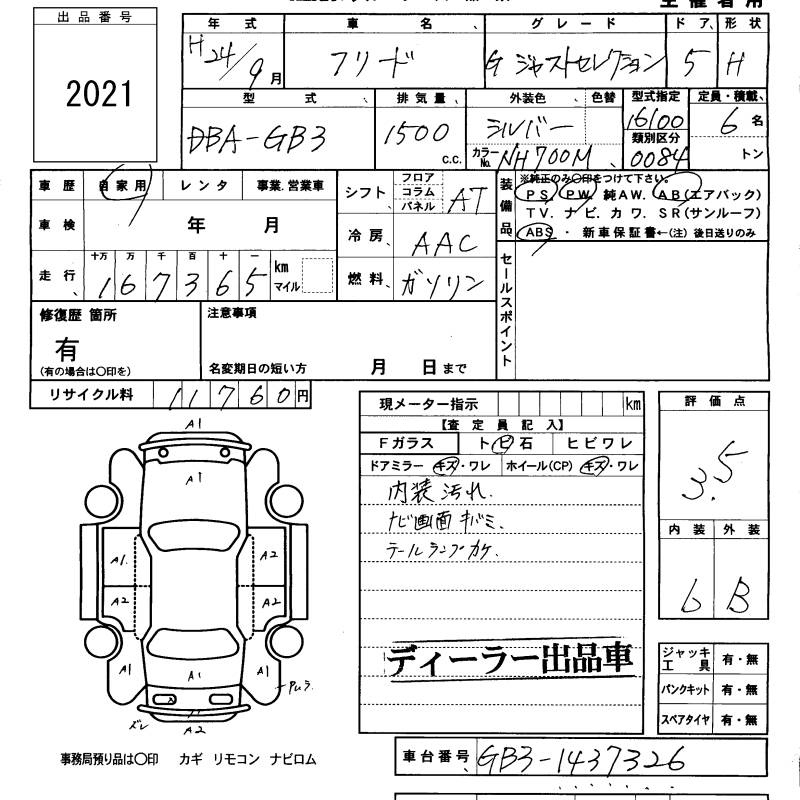 出品番号
2021
年式 車名 グレード ドア 形状
H24/9月 フリード G ジャストセレクション 5 H
型式 排気量 外装色 色替 型式指定 定員・積載
DBA-GB3 1500 c.c. シルバー 16100 6名
カラーNo. NH700M 類別区分 0084 トン
車歴 自家用 レンタ 事業.営業車
シフト フロア コラム パネル AT
装備品 ※純正のみ〇印をつけて下さい。
PS. PW. 純AW. AB(エアバック)
TV. ナビ. カワ. SR(サンルーフ)
ABS ・ 新車保証書←(注) 後日送りのみ
車検 年 月
冷房 AAC
走行 十万 万 千 百 十 一
167365 km マイル
燃料 ガソリン
セールスポイント
修復歴 箇所
有
(有の場合は〇印を)
注意事項
名変期日の短い方 月 日まで
リサイクル料 11760円
現メーター指示 km
【査定員記入】
Fガラス トビ石 ヒビワレ
ドアミラー キズ・ワレ ホイール(CP) キズ・ワレ
内装 汚れ.
ナビ画面 キバミ.
テールランプカケ.
ディーラー出品車
評価点
3.5
内装 外装
6 B
ジャッキ工具 有・無
パンクキット 有・無
スペアタイヤ 有・無
A1
A1
A1. A2
A2 A2
A1 A1 A1
ズレ A2
事務局預り品は〇印 カギ リモコン ナビロム
車台番号 GB3-1437326